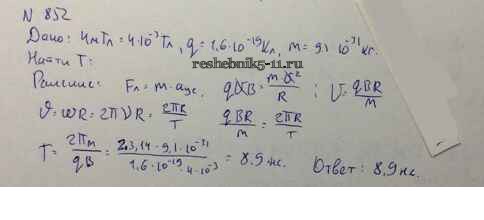 N 852
Дано: 4мТл = 4·10⁻³Тл, q = 1,6·10⁻¹⁹Кл, m = 9,1 10⁻³¹кг.
Найти T:
reshebnik5-11.ru
Решение: Fл = m·aцс, qυB = mυ²/R ; υ = qBR/m
υ = ωR = 2πνR = 2πR/T qBR/m = 2πR/T
T = 2πm/qB = 2·3,14·9,1·10⁻³¹/1,6·10⁻¹⁹·4·10⁻³ = 8.9 нс. Ответ: 8,9 нс.